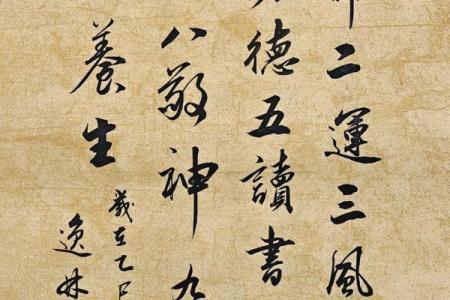 二運三風
德五讀書
八敬神九
養生
歲在乙巳
逸林